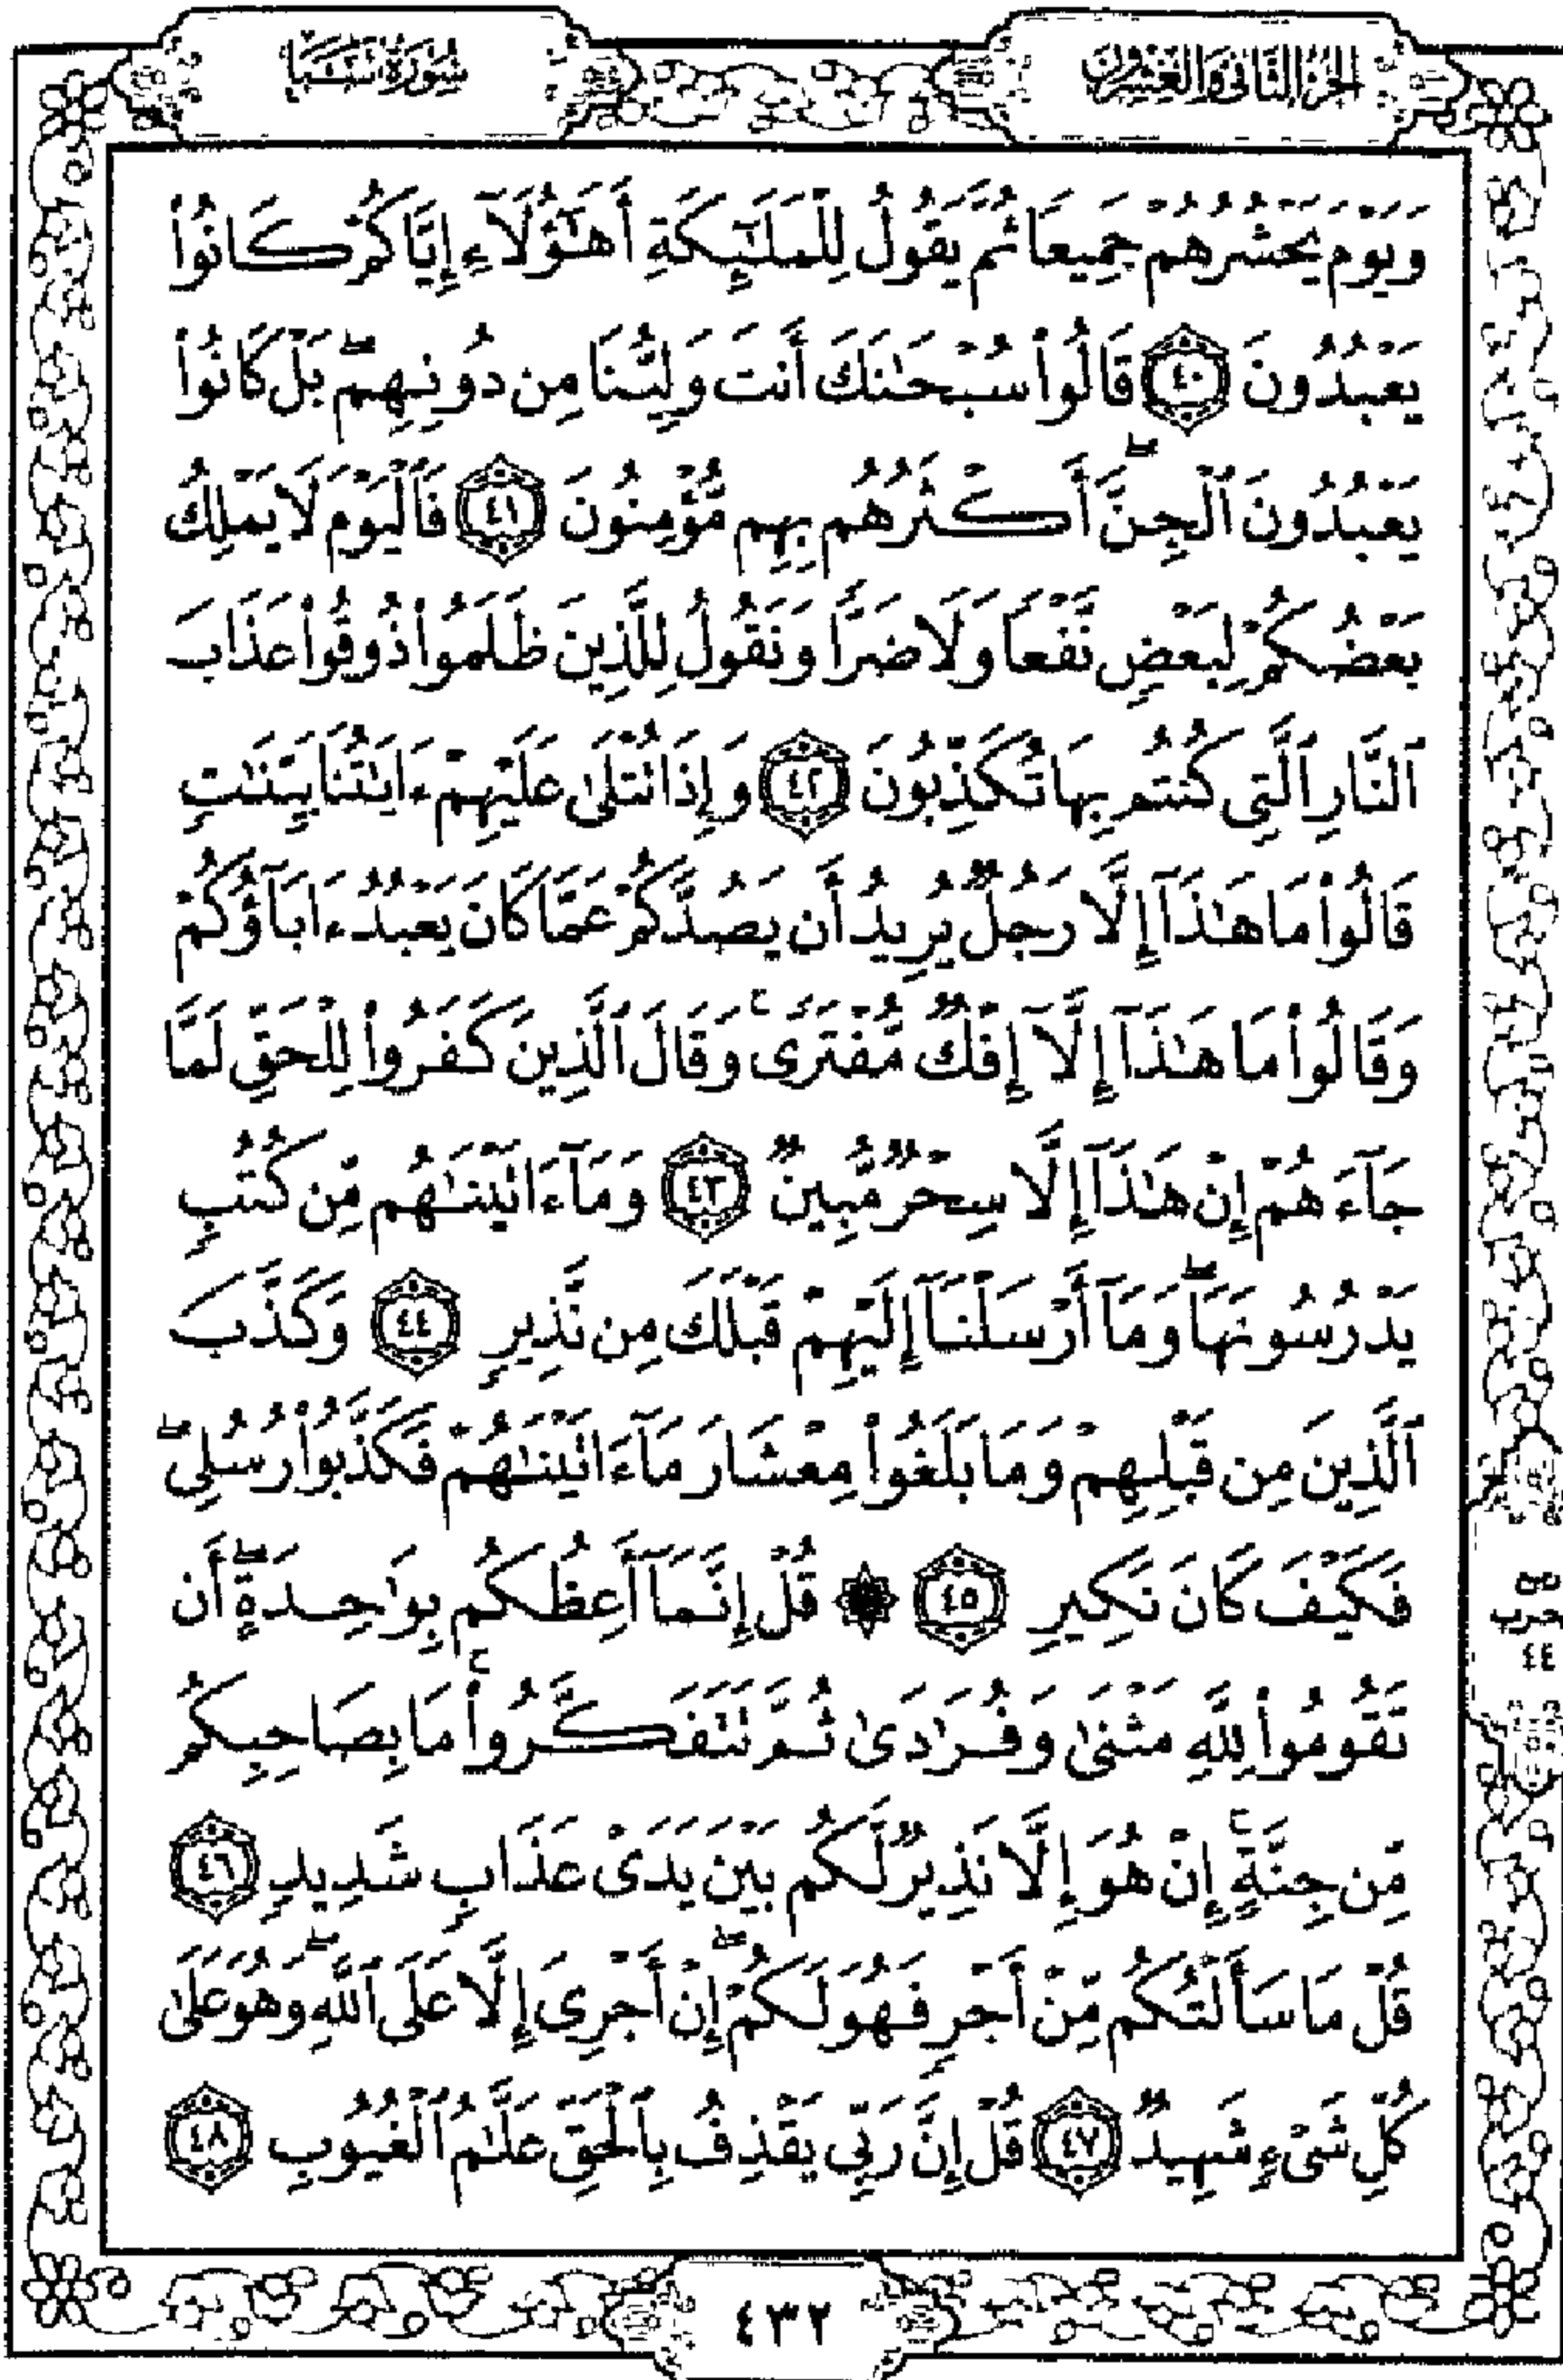 الجزء الثاني والعشرون
سورة سبأ
وَيَوْمَ يَحْشُرُهُمْ جَمِيعًا ثُمَّ يَقُولُ لِلْمَلَٰٓئِكَةِ أَهَٰٓؤُلَآءِ إِيَّاكُمْ كَانُوا۟
يَعْبُدُونَ ٤٠ قَالُوا۟ سُبْحَٰنَكَ أَنتَ وَلِيُّنَا مِن دُونِهِم ۖ بَلْ كَانُوا۟
يَعْبُدُونَ ٱلْجِنَّ ۖ أَكْثَرُهُم بِهِم مُّؤْمِنُونَ ٤١ فَٱلْيَوْمَ لَا يَمْلِكُ
بَعْضُكُمْ لِبَعْضٍ نَّفْعًا وَلَا ضَرًّا وَنَقُولُ لِلَّذِينَ ظَلَمُوا۟ ذُوقُوا۟ عَذَابَ
ٱلنَّارِ ٱلَّتِى كُنتُم بِهَا تُكَذِّبُونَ ٤٢ وَإِذَا تُتْلَىٰ عَلَيْهِمْ ءَايَٰتُنَا بَيِّنَٰتٍ
قَالُوا۟ مَا هَٰذَآ إِلَّا رَجُلٌ يُرِيدُ أَن يَصُدَّكُمْ عَمَّا كَانَ يَعْبُدُ ءَابَآؤُكُمْ
وَقَالُوا۟ مَا هَٰذَآ إِلَّآ إِفْكٌ مُّفْتَرًى ۚ وَقَالَ ٱلَّذِينَ كَفَرُوا۟ لِلْحَقِّ لَمَّا
جَآءَهُمْ إِنْ هَٰذَآ إِلَّا سِحْرٌ مُّبِينٌ ٤٣ وَمَآ ءَاتَيْنَٰهُم مِّن كُتُبٍ
يَدْرُسُونَهَا ۖ وَمَآ أَرْسَلْنَآ إِلَيْهِمْ قَبْلَكَ مِن نَّذِيرٍ ٤٤ وَكَذَّبَ
ٱلَّذِينَ مِن قَبْلِهِمْ وَمَا بَلَغُوا۟ مِعْشَارَ مَآ ءَاتَيْنَٰهُمْ فَكَذَّبُوا۟ رُسُلِى ۖ
فَكَيْفَ كَانَ نَكِيرِ ٤٥ ۞ قُلْ إِنَّمَآ أَعِظُكُم بِوَٰحِدَةٍ ۖ أَن
تَقُومُوا۟ لِلَّهِ مَثْنَىٰ وَفُرَٰدَىٰ ثُمَّ تَتَفَكَّرُوا۟ ۚ مَا بِصَاحِبِكُم
مِّن جِنَّةٍ ۚ إِنْ هُوَ إِلَّا نَذِيرٌ لَّكُم بَيْنَ يَدَىْ عَذَابٍ شَدِيدٍ ٤٦
قُلْ مَا سَأَلْتُكُم مِّنْ أَجْرٍ فَهُوَ لَكُمْ ۖ إِنْ أَجْرِىَ إِلَّا عَلَى ٱللَّهِ ۖ وَهُوَ عَلَىٰ
كُلِّ شَىْءٍ شَهِيدٌ ٤٧ قُلْ إِنَّ رَبِّى يَقْذِفُ بِٱلْحَقِّ عَلَّٰمُ ٱلْغُيُوبِ ٤٨
حزب
٤٤
٤٣٢